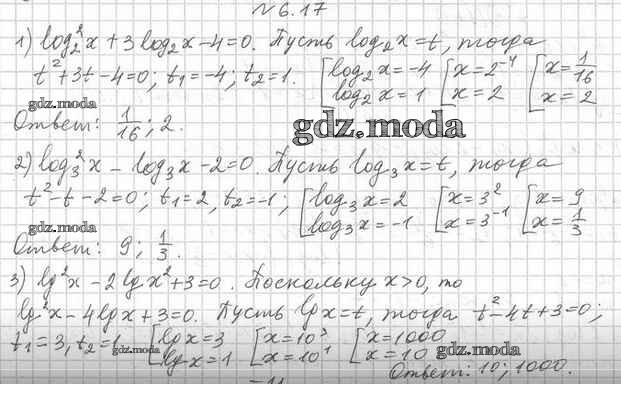 №6.17
1) log₂²x + 3log₂x - 4 = 0. Пусть log₂x = t, тогда
t² + 3t - 4 = 0; t₁ = -4; t₂ = 1. [log₂x = -4 [x = 2⁻⁴ [x = 1/16
log₂x = 1 x = 2 x = 2
gdz.moda
Ответ: 1/16; 2.
gdz.moda
2) log₃²x - log₃x - 2 = 0. Пусть log₃x = t, тогда
t² - t - 2 = 0; t₁ = 2, t₂ = -1; [log₃x = 2 [x = 3² [x = 9
log₃x = -1 x = 3⁻¹ x = 1/3
gdz.moda
Ответ: 9; 1/3.
3) lg²x - 2lgx² + 3 = 0. Поскольку x > 0, то
lg²x - 4lgx + 3 = 0. Пусть lgx = t, тогда t² - 4t + 3 = 0;
t₁ = 3, t₂ = 1 [lgx = 3 [x = 10³ [x = 1000
gdz.moda lgx = 1 x = 10¹ x = 10 gdz.moda
Ответ: 10; 1000.